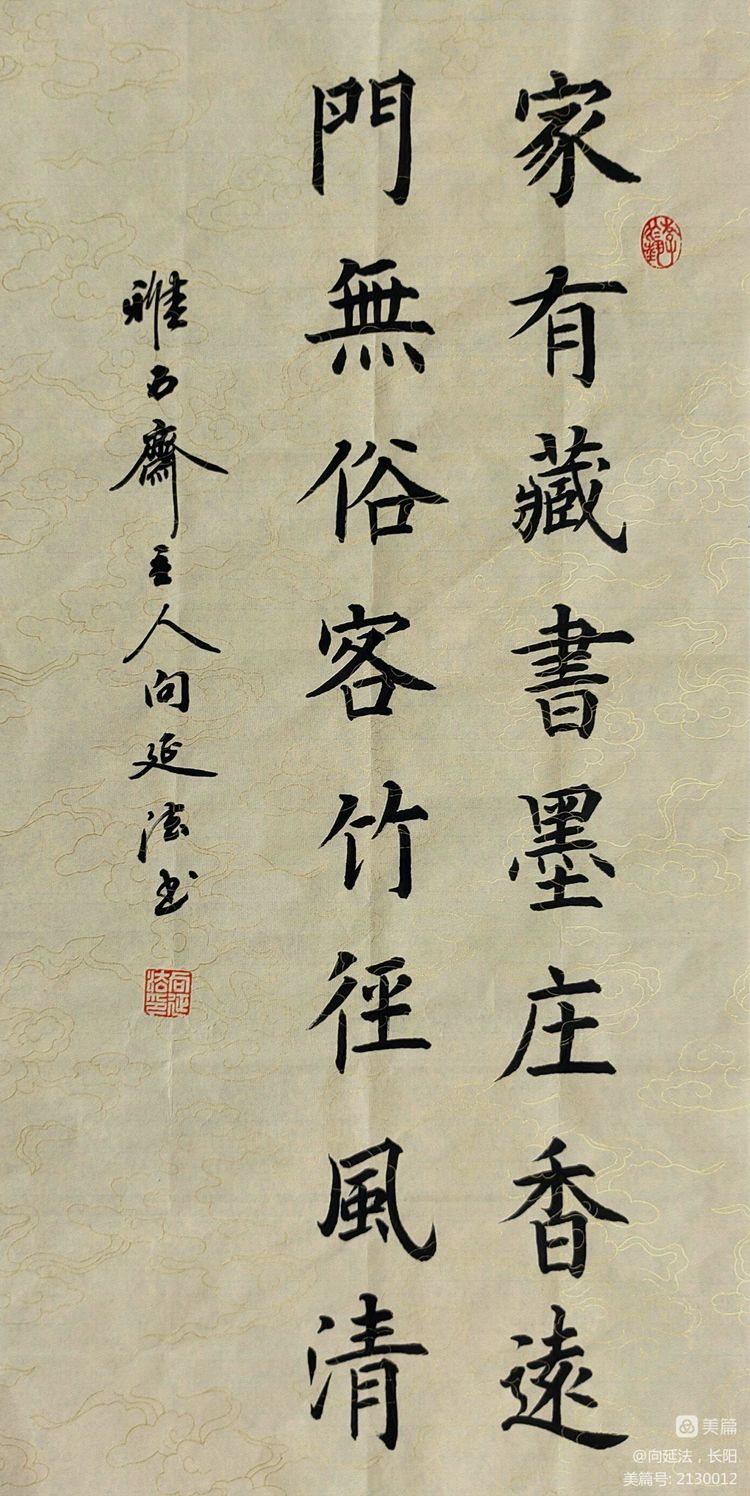 家有藏書墨庄香遠
門無俗客竹徑風清
雅石齋主人向延法书
向延法印
美篇
@向延法，长阳
美篇号: 2130012